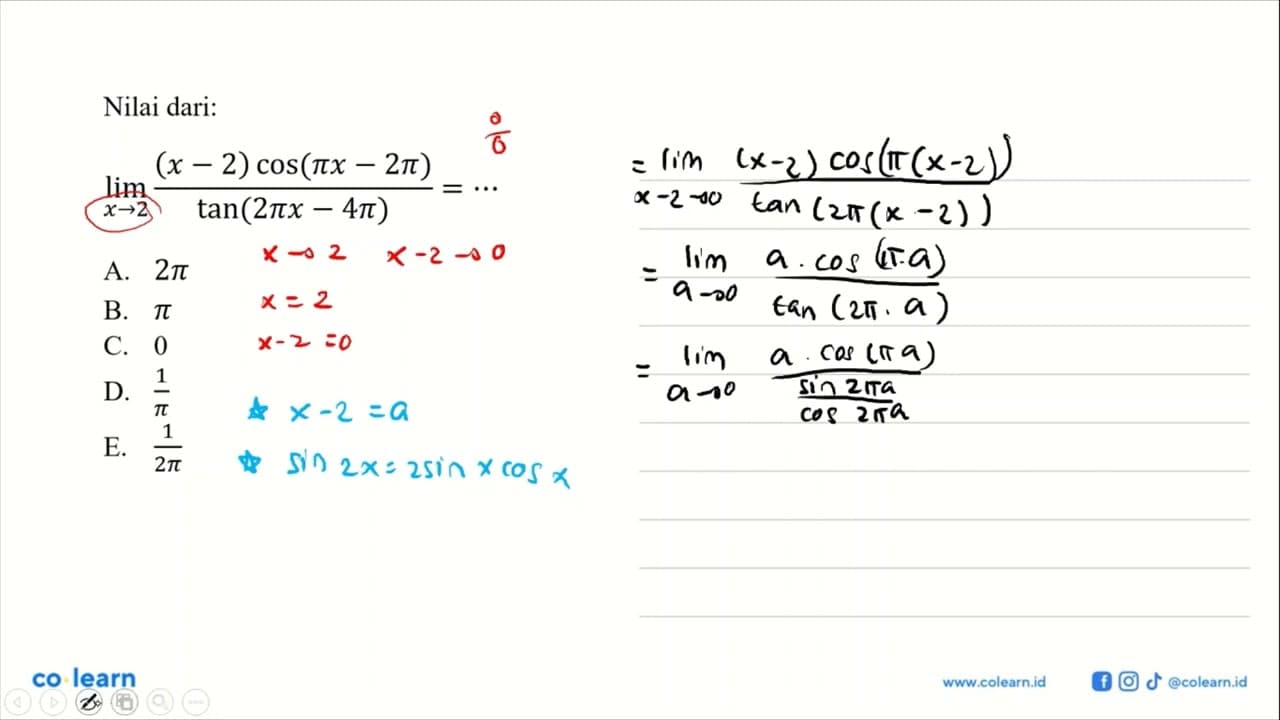 Nilai dari:
lim x→2 (x − 2) cos(πx − 2π) / tan(2πx − 4π) = ⋯
0/0
x→2 x-2→0
A. 2π
B. π
x = 2
C. 0
x-2 =0
D. 1/π
★ x-2 = a
E. 1/2π
★ sin 2x = 2 sin x cos x
= lim x-2→0 (x-2) cos(π(x-2)) / tan (2π(x-2))
= lim a→0 a . cos (π.a) / tan (2π. a)
= lim a→0 a . cos (π a) / (sin 2πa / cos 2πa)
co·learn
www.colearn.id
@colearn.id